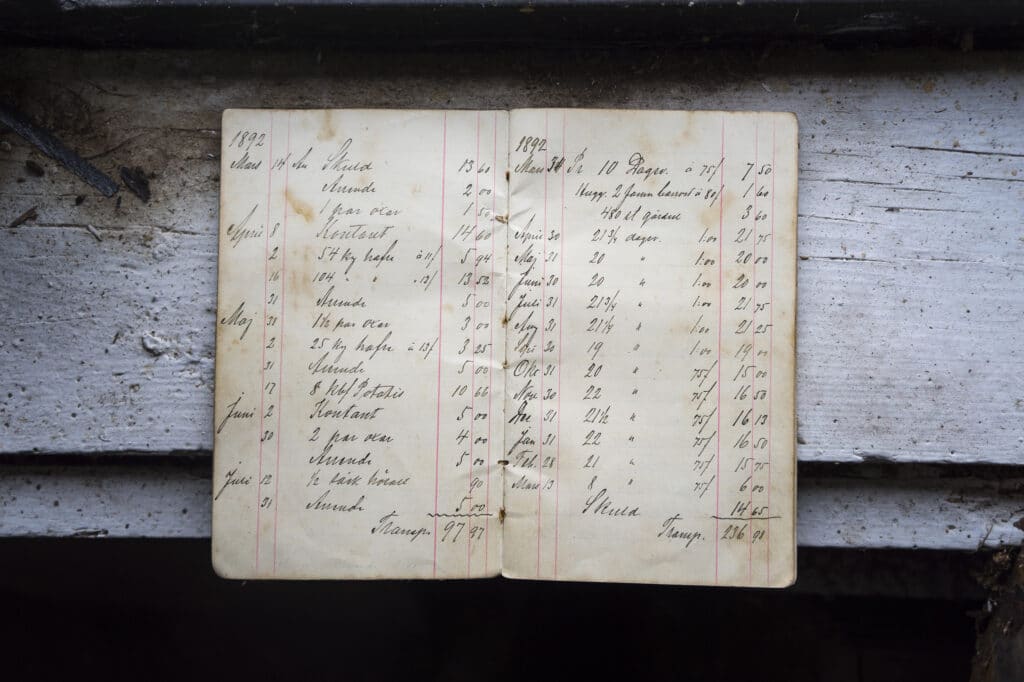 1892
Mars 14 An Skuld 13 60
Arrende 2 00
1 par oxar 1 50
April 8 Kontant 14 60
2 54 kg hafre à 11/ 5 94
16 104 " " " 13/ 13 52
31 Arrende 5 00
Maj 31 1½ par oxar 3 00
2 25 kg hafre à 13/ 3 25
31 Arrende 5 00
17 8 kbf Potatis 10 66
Juni 2 Kontant 5 00
30 2 par oxar 4 00
Arrende 5 00
Juli 12 ½ 90
31 Arrende 5 00
Transp. 97 97
1892
Mars Pr 10 Dagsv. à 75/ 7 50
Hugg. 2 famn à 80/ 1 60
480 st 3 60
April 30 21¾ dagsv. 1.00 21 75
Maj 31 20 " 1.00 20 00
Juni 30 20 " 1.00 20 00
Juli 31 21¾ " 1.00 21 75
Aug 31 21¼ " 1.00 21 25
Sept 30 19 " 1.00 19 00
Okt 31 20 " 75/ 15 00
Nov 30 22 " 75/ 16 50
Dec 31 21½ " 75/ 16 13
Jan 31 22 " 75/ 16 50
Feb. 28 21 " 75/ 15 75
Mars 13 8 " 75/ 6 00
Skuld 14 65
Transp. 236 98